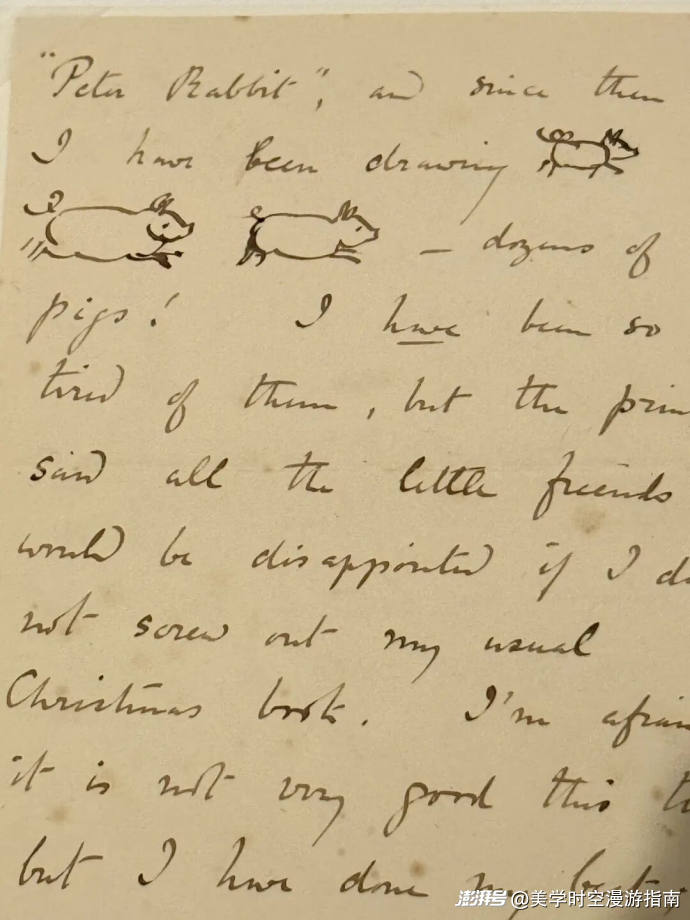 "Peter Rabbit", and since then
I have been drawing
— dozens of
pigs! I have been so
tired of them, but the prin
said all the little friends
would be disappointed if I di
not screw out my usual
Christmas book. I'm afrai
it is not very good this ti
but I have done my best,
澎湃号 @美学时空漫游指南